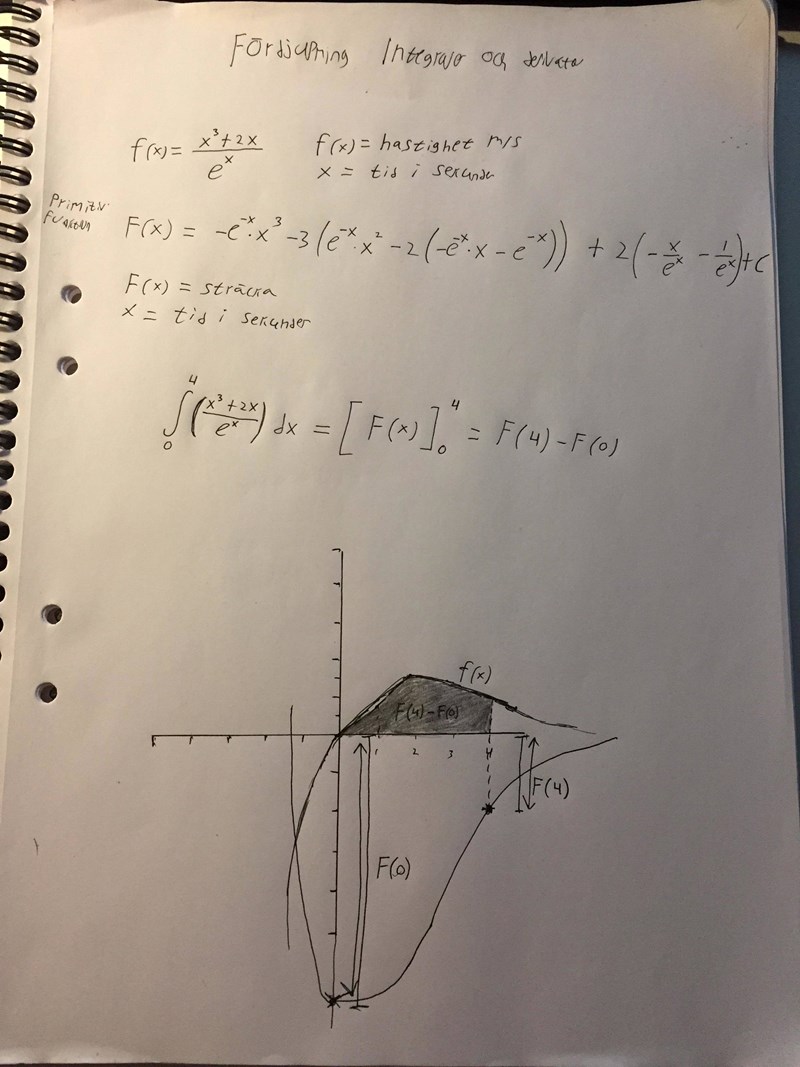 Fördjupning Integraler och derivata
f(x) = (x³+2x)/eˣ f(x) = hastighet m/s
x = tid i sekunder
Primitiv
funktion
F(x) = -e⁻ˣ·x³ -3(e⁻ˣ·x² -2(-e⁻ˣ·x - e⁻ˣ)) + 2(-x/eˣ - 1/eˣ)+C
F(x) = sträcka
x = tid i sekunder
∫₀⁴ ((x³+2x)/eˣ) dx = [F(x)]₀⁴ = F(4)-F(0)
f(x)
F(4)-F(0)
1 2 3 4
F(4)
F(0)